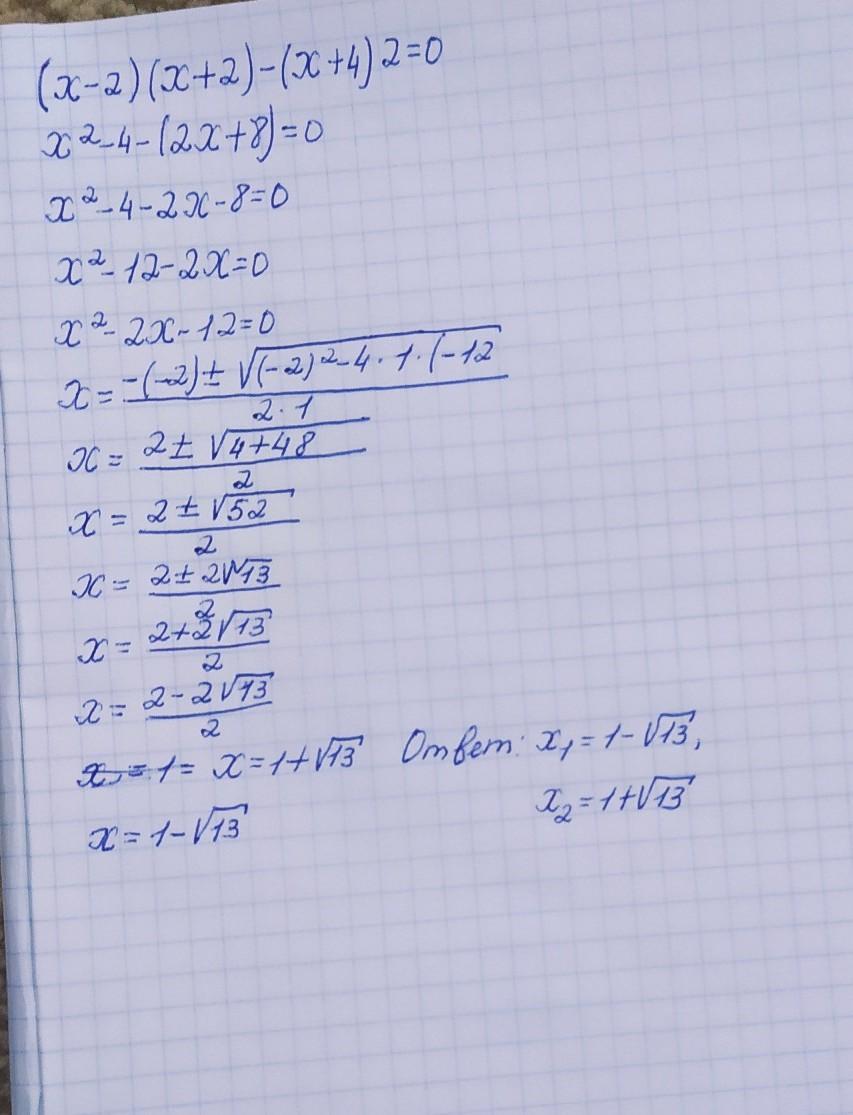 (x-2)(x+2)-(x+4)2=0
x²-4-(2x+8)=0
x²-4-2x-8=0
x²-12-2x=0
x²-2x-12=0
x = (-(-2)±√(-2)²-4·1·(-12)/(2·1)
x = (2±√4+48)/2
x = (2±√52)/2
x = (2±2√13)/2
x = (2+2√13)/2
x = (2-2√13)/2
x = 1 = x=1+√13 Ответ: x₁=1-√13,
x₂=1+√13
x=1-√13